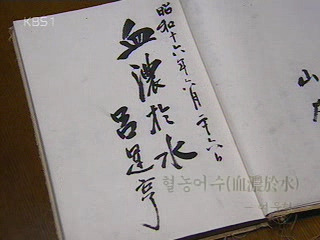 KBS1
昭和十六年六月二十六日
血濃於水
呂運亨
山
혈농어수(血濃於水)
- 여운형